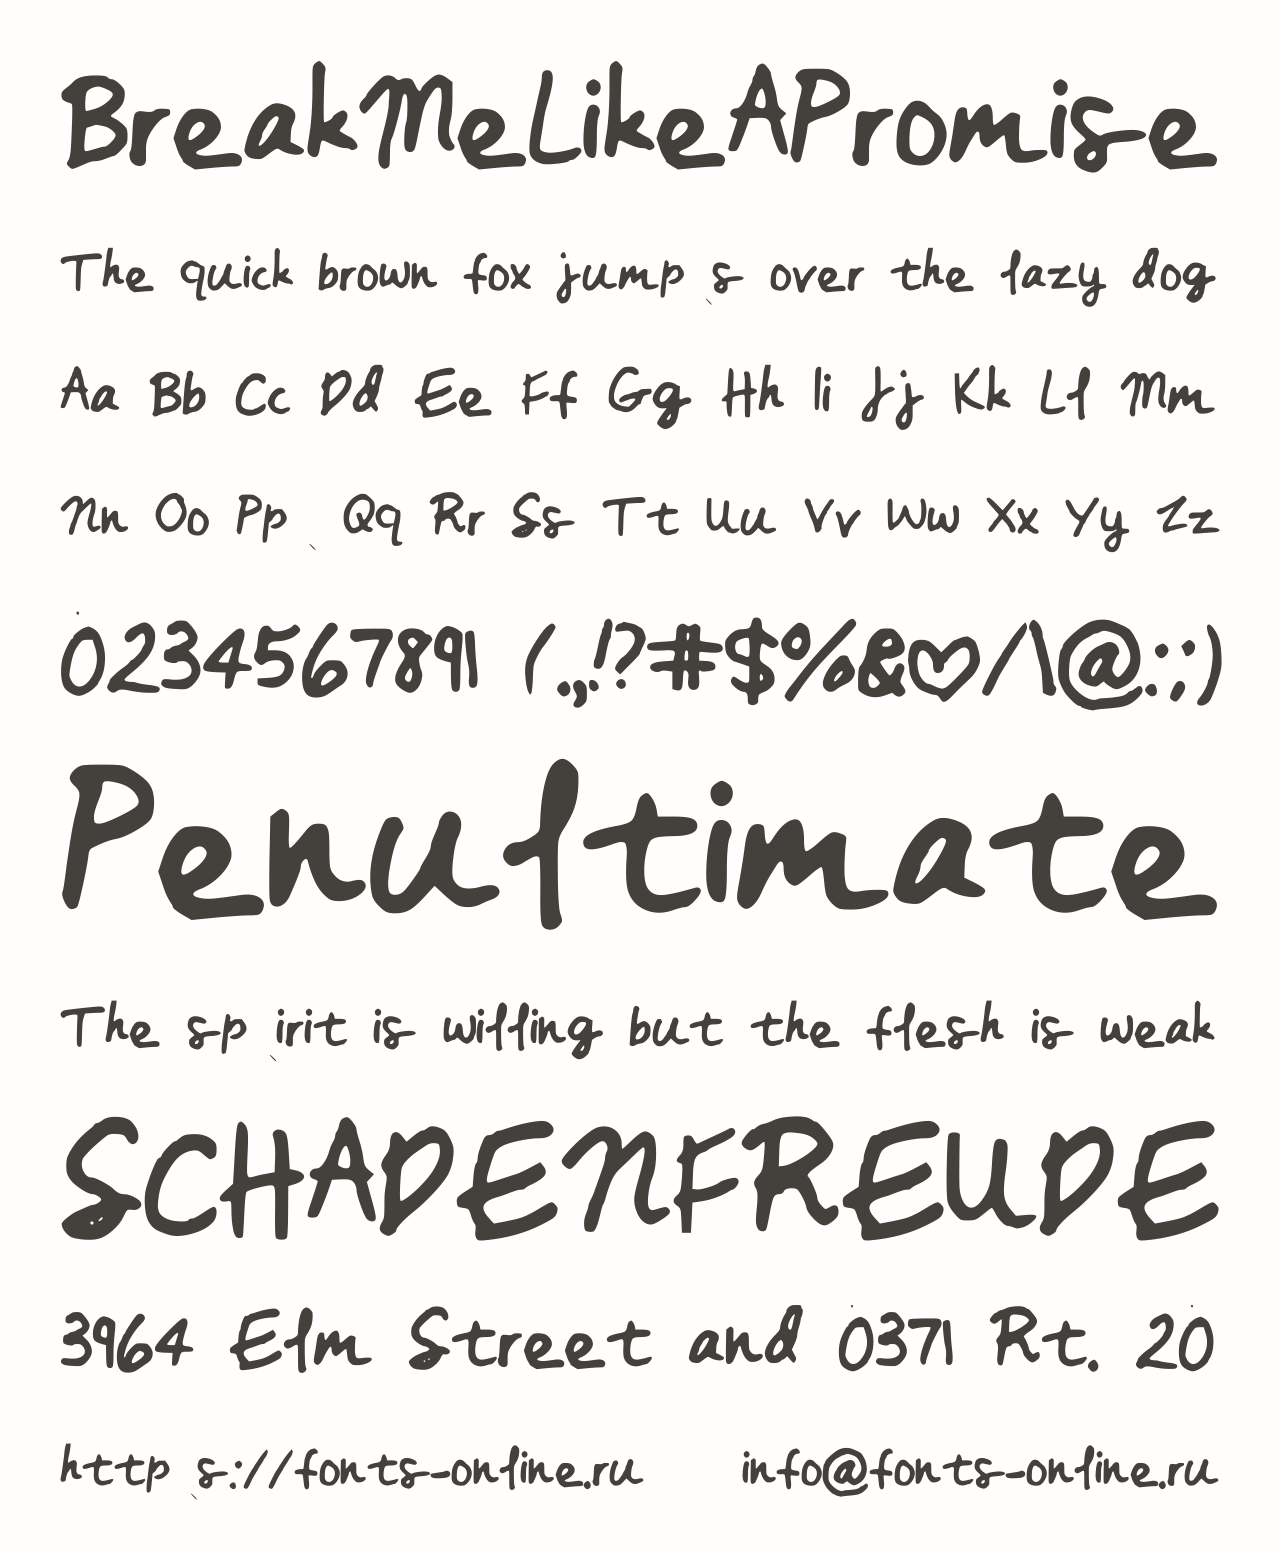 BreakMeLikeAPromise
The quick brown fox jumps over the lazy dog
Aa Bb Cc Dd Ee Ff Gg Hh Ii Jj Kk Ll Mm
Nn Oo Pp Qq Rr Ss Tt Uu Vv Ww Xx Yy Zz
0234567891 (.,!?#$%&♡/\@:;)
Penultimate
The spirit is willing but the flesh is weak
SCHADENFREUDE
3964 Elm Street and 0371 Rt. 20
https://fonts-online.ru info@fonts-online.ru